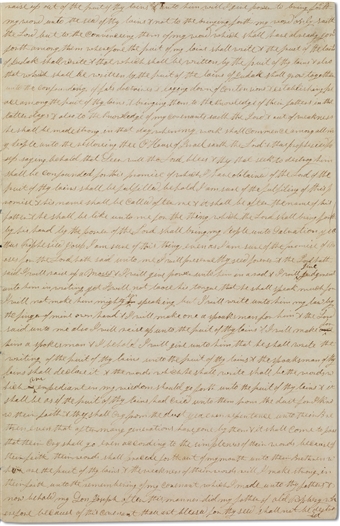 raise up out of the fruit of thy loins & unto him will I give power to bring forth
my word unto the seed of thy loins & not to the bringing forth my word only saith
the Lord but to the convincing them of my word which shall have already gone
forth among them wherefore the fruit of thy loins shall write & the fruit of the loins
of Judah shall write & that which shall be written by the fruit of thy loins & also
that which shall be written by the fruit of the loins of Judah shall grow together
unto the confounding of false doctrines & laying down of contentions & establishing peace
among the fruit of thy loins & bringing them to the knowledge of their fathers in the
latter days & also to the knowledge of my covenants saith the Lord & out of weakness
he shall be made strong in that day when my work shall commence among all
my people unto the restoring thee O House of Israel saith the Lord & thus prophesied
Joseph saying behold that Seer will the Lord bless & they that seek to destroy him
shall be confounded for this promise of which I have obtained of the Lord of the
fruit of thy loins shall be fulfilled behold I am sure of the fulfilling of this
promise & his name shall be called after me & it shall be after the name of his
father & he shall be like unto me for the thing which the Lord shall bring forth
by his hand by the power of the Lord shall bring my people unto salvation yea
thus prophesied Joseph I am sure of this thing even as I am sure of the promise of
for the Lord hath said unto me I will preserve thy seed forever & the Lord hath
said I will raise up a Moses & I will give power unto him in a rod & I will give judgment
unto him in writing yet I will not loose his tongue that he shall speak much for
I will not make him mighty in speaking but I will write unto him my law by
the finger of mine own hand & I will make one a spokesman for him & the Lord
said unto me also I will raise up unto the fruit of thy loins & I will make
him a spokesman & I behold I will give unto him that he shall write the
writing of the fruit of thy loins unto the fruit of thy loins & the spokesman of thy
loins shall declare it & the words which he shall write shall be the words
which are expedient in my wisdom should go forth unto the fruit of thy loins & it
shall be as if the fruit of thy loins had cried unto them from the dust for I know
their faith & they shall cry from the dust yea even repentance unto their brethren
even after many generations have gone by them & it shall come to pass
that their cry shall go even according to the simpleness of their words because of
their faith their words shall proceed forth out of my mouth unto their brethren
which are the fruit of thy loins & the weakness of their words will I make strong in
their faith unto the remembering of my covenant which I made unto thy fathers &
now behold my Son Joseph after this manner did my father of old prophesy
wherefore because of this covenant thou art blessed for thy seed shall not be destroyed